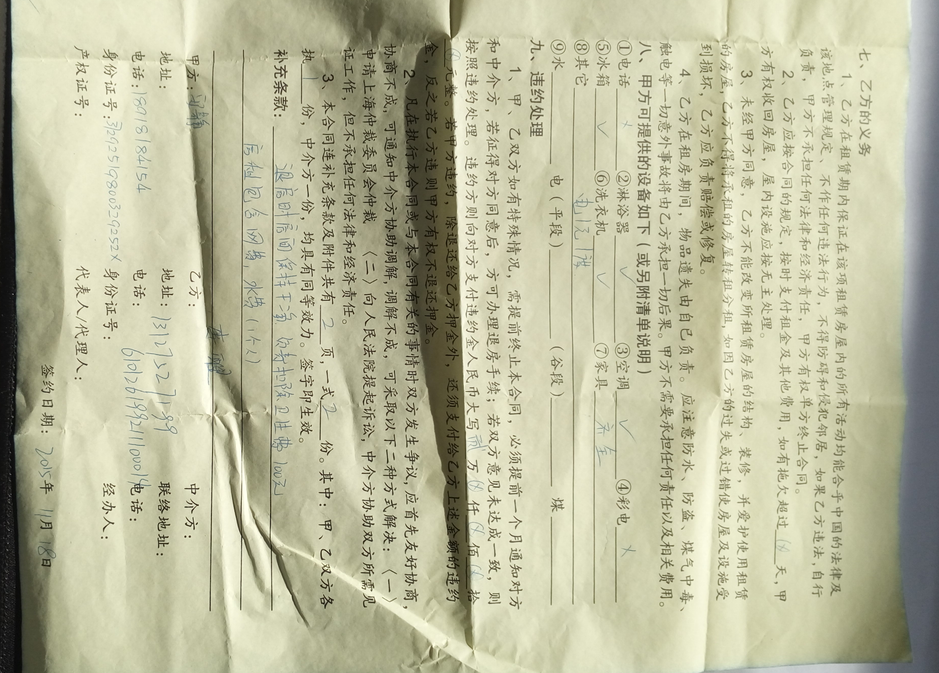 七、乙方的义务
1、乙方在租赁期内保证在该项租赁房屋内的所有活动均能合乎中国的法律及
该地点管理规定、不作任何违法行为，不得妨碍和侵犯邻居，如果乙方违法，自行
负责，甲方不承担任何法律和经济责任，甲方有权单方终止合同。
2、乙方应按合同的规定，按时支付租金及其他费用，如有拖欠超过 天，甲
方有权收回房屋，屋内设施应按无主处理。
3、未经甲方同意，乙方不能改变所租赁房屋的结构、装修，并爱护使用租赁
的房屋，乙方不得将承租的房屋转租分租，如因乙方的过失或过错使房屋及设施受
到损坏，乙方应负责赔偿或修复。
4、乙方在租房期间，物品遗失由自己负责。应注意防水、防盗、煤气中毒、
触电等一切意外事故将由乙方承担一切后果。甲方不需要承担任何责任以及相关费用。
八、甲方可提供的设备如下（或另附清单说明）
①电话 × ②淋浴器 √ ③空调 √ ④彩电 ×
⑤冰箱 √ ⑥洗衣机 √ ⑦家具 齐全
⑧其它
⑨水 电（平段） （谷段） 煤
九、违约处理
1、甲、乙双方如有特殊情况，需提前终止本合同，必须提前一个月通知对方
和中介方，若征得对方同意后，方可办理退房手续；若双方意见未达成一致，则
按照违约处理。违约方则向对方支付违约金人民币大写 贰 万 仟 佰 拾
元整。若甲方违约，除退还给乙方押金外，还须支付给乙方上述金额的违约
金，反之若乙方违则甲方有权不退还押金。
2、凡在执行本合同或与本合同有关的事情时双方发生争议，应首先友好协商，
协商不成，可通知中介方协助调解，调解不成，可采取以下二种方式解决：（一）
申请上海仲裁委员会仲裁 （二）向人民法院提起诉讼，中介方协助双方所需见
证工作，但不承担任何法律和经济责任。
3、本合同连补充条款及附件共有 2 页，一式 2 份。其中：甲、乙双方各
执 1 份，中介方一份，均具有同等效力。签字即生效。
补充条款： 退房时房间保持干净 扣除卫生费100元
房租包含网费，水费（1个）
甲方： 乙方： 中介方：
地址： 地址： 13127527199 联络地址：
电话：18918184154 电话： 电话：
身份证号： 身份证号： 经办人：
产权证号： 代表人/代理人：
签约日期： 2015年 11月 18日